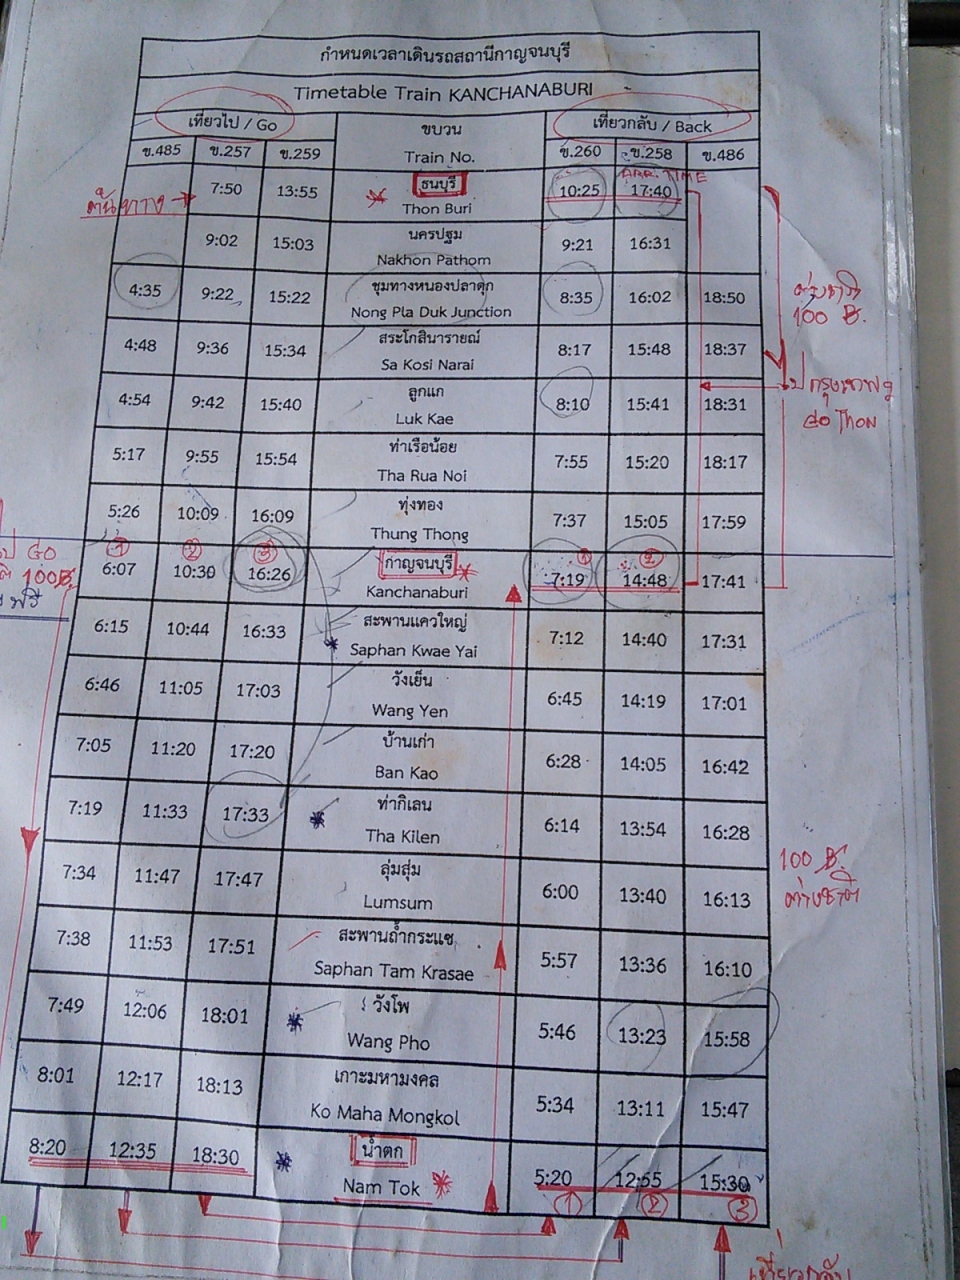 กำหนดเวลาเดินรถสถานีกาญจนบุรี
Timetable Train KANCHANABURI
เที่ยวไป / Go ขบวน เที่ยวกลับ / Back
ข.485 ข.257 ข.259 Train No. ข.260 ข.258 ข.486
ARR. TIME
ต้นทาง 7:50 13:55 ธนบุรี 10:25 17:40
Thon Buri
9:02 15:03 นครปฐม 9:21 16:31
Nakhon Pathom
4:35 9:22 15:22 ชุมทางหนองปลาดุก 8:35 16:02 18:50
Nong Pla Duk Junction
ต่างชาติ
100 ฿.
4:48 9:36 15:34 สระโกสินารายณ์ 8:17 15:48 18:37
Sa Kosi Narai
ไปกรุงเทพฯ
GO THON
4:54 9:42 15:40 ลูกแก 8:10 15:41 18:31
Luk Kae
5:17 9:55 15:54 ท่าเรือน้อย 7:55 15:20 18:17
Tha Rua Noi
5:26 10:09 16:09 ทุ่งทอง 7:37 15:05 17:59
Thung Thong
1 2 3 1 2
ไป GO
100 ฿
ฟรี
6:07 10:30 16:26 กาญจนบุรี 7:19 14:48 17:41
Kanchanaburi
6:15 10:44 16:33 สะพานแควใหญ่ 7:12 14:40 17:31
Saphan Kwae Yai
6:46 11:05 17:03 วังเย็น 6:45 14:19 17:01
Wang Yen
7:05 11:20 17:20 บ้านเก่า 6:28 14:05 16:42
Ban Kao
7:19 11:33 17:33 ท่ากิเลน 6:14 13:54 16:28
Tha Kilen
100 ฿.
ต่างชาติ
7:34 11:47 17:47 ลุ่มสุ่ม 6:00 13:40 16:13
Lumsum
7:38 11:53 17:51 สะพานถ้ำกระแซ 5:57 13:36 16:10
Saphan Tam Krasae
7:49 12:06 18:01 วังโพ 5:46 13:23 15:58
Wang Pho
8:01 12:17 18:13 เกาะมหามงคล 5:34 13:11 15:47
Ko Maha Mongkol
8:20 12:35 18:30 น้ำตก 5:20 12:55 15:30
Nam Tok
1 2 3
เที่ยวกลับ